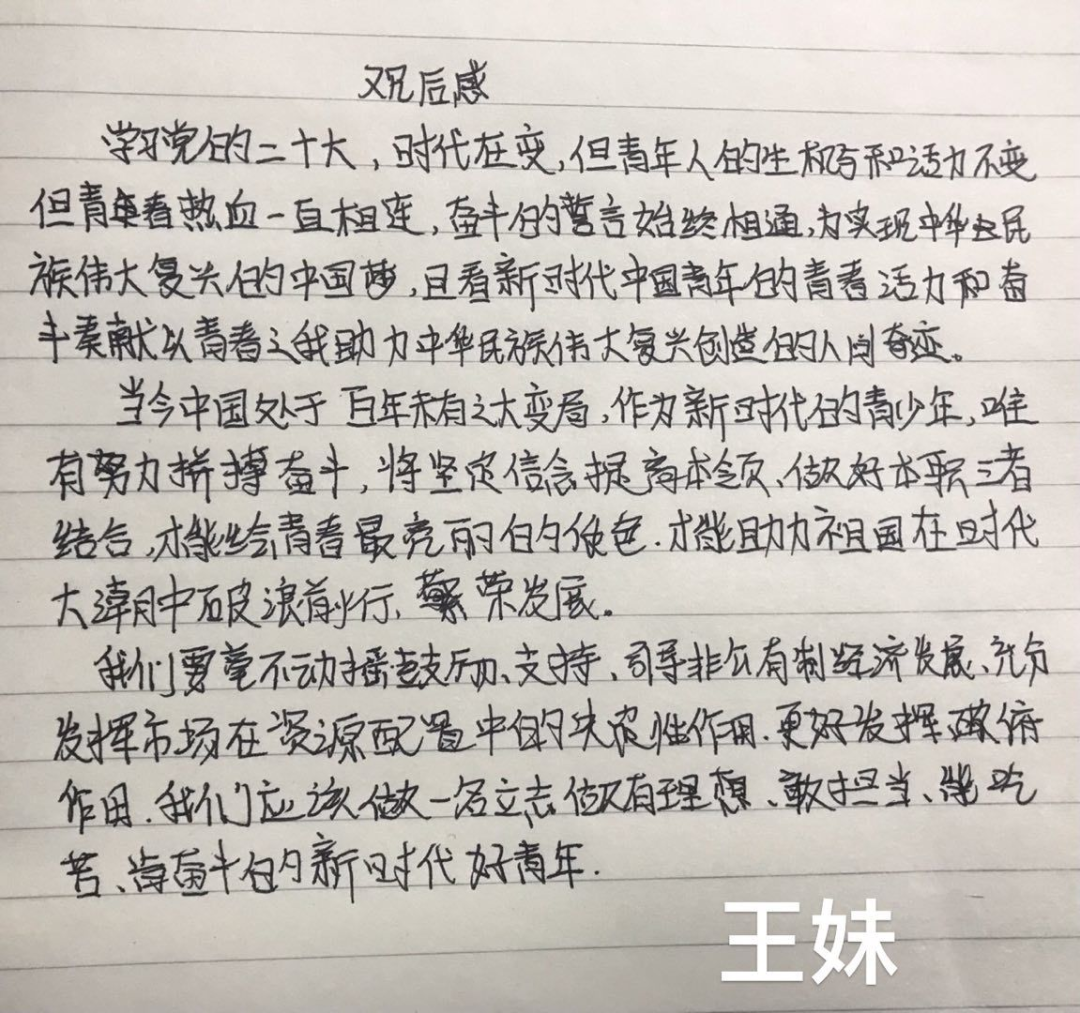 观后感
学习党的二十大，时代在变，但青年人的生机与和活力不变
但青春热血一直相连，奋斗的誓言始终相通，为实现中华民
族伟大复兴的中国梦，且看新时代中国青年的青春活力和奋
斗奏献以青春之我助力中华民族伟大复兴创造的人间奇迹。
当今中国处于百年未有之大变局，作为新时代的青少年，唯
有努力拼搏奋斗，将坚定信念提高本领、做好本职三者
结合，才能绘青春最亮丽的底色.才能助力祖国在时代
大潮中破浪前行、繁荣发展。
我们要毫不动摇鼓励、支持、引导非公有制经济发展、充分
发挥市场在资源配置中的决定性作用.更好发挥政府
作用.我们应该做一名立志做有理想、敢担当、能吃
苦、肯奋斗的新时代好青年.
王妹